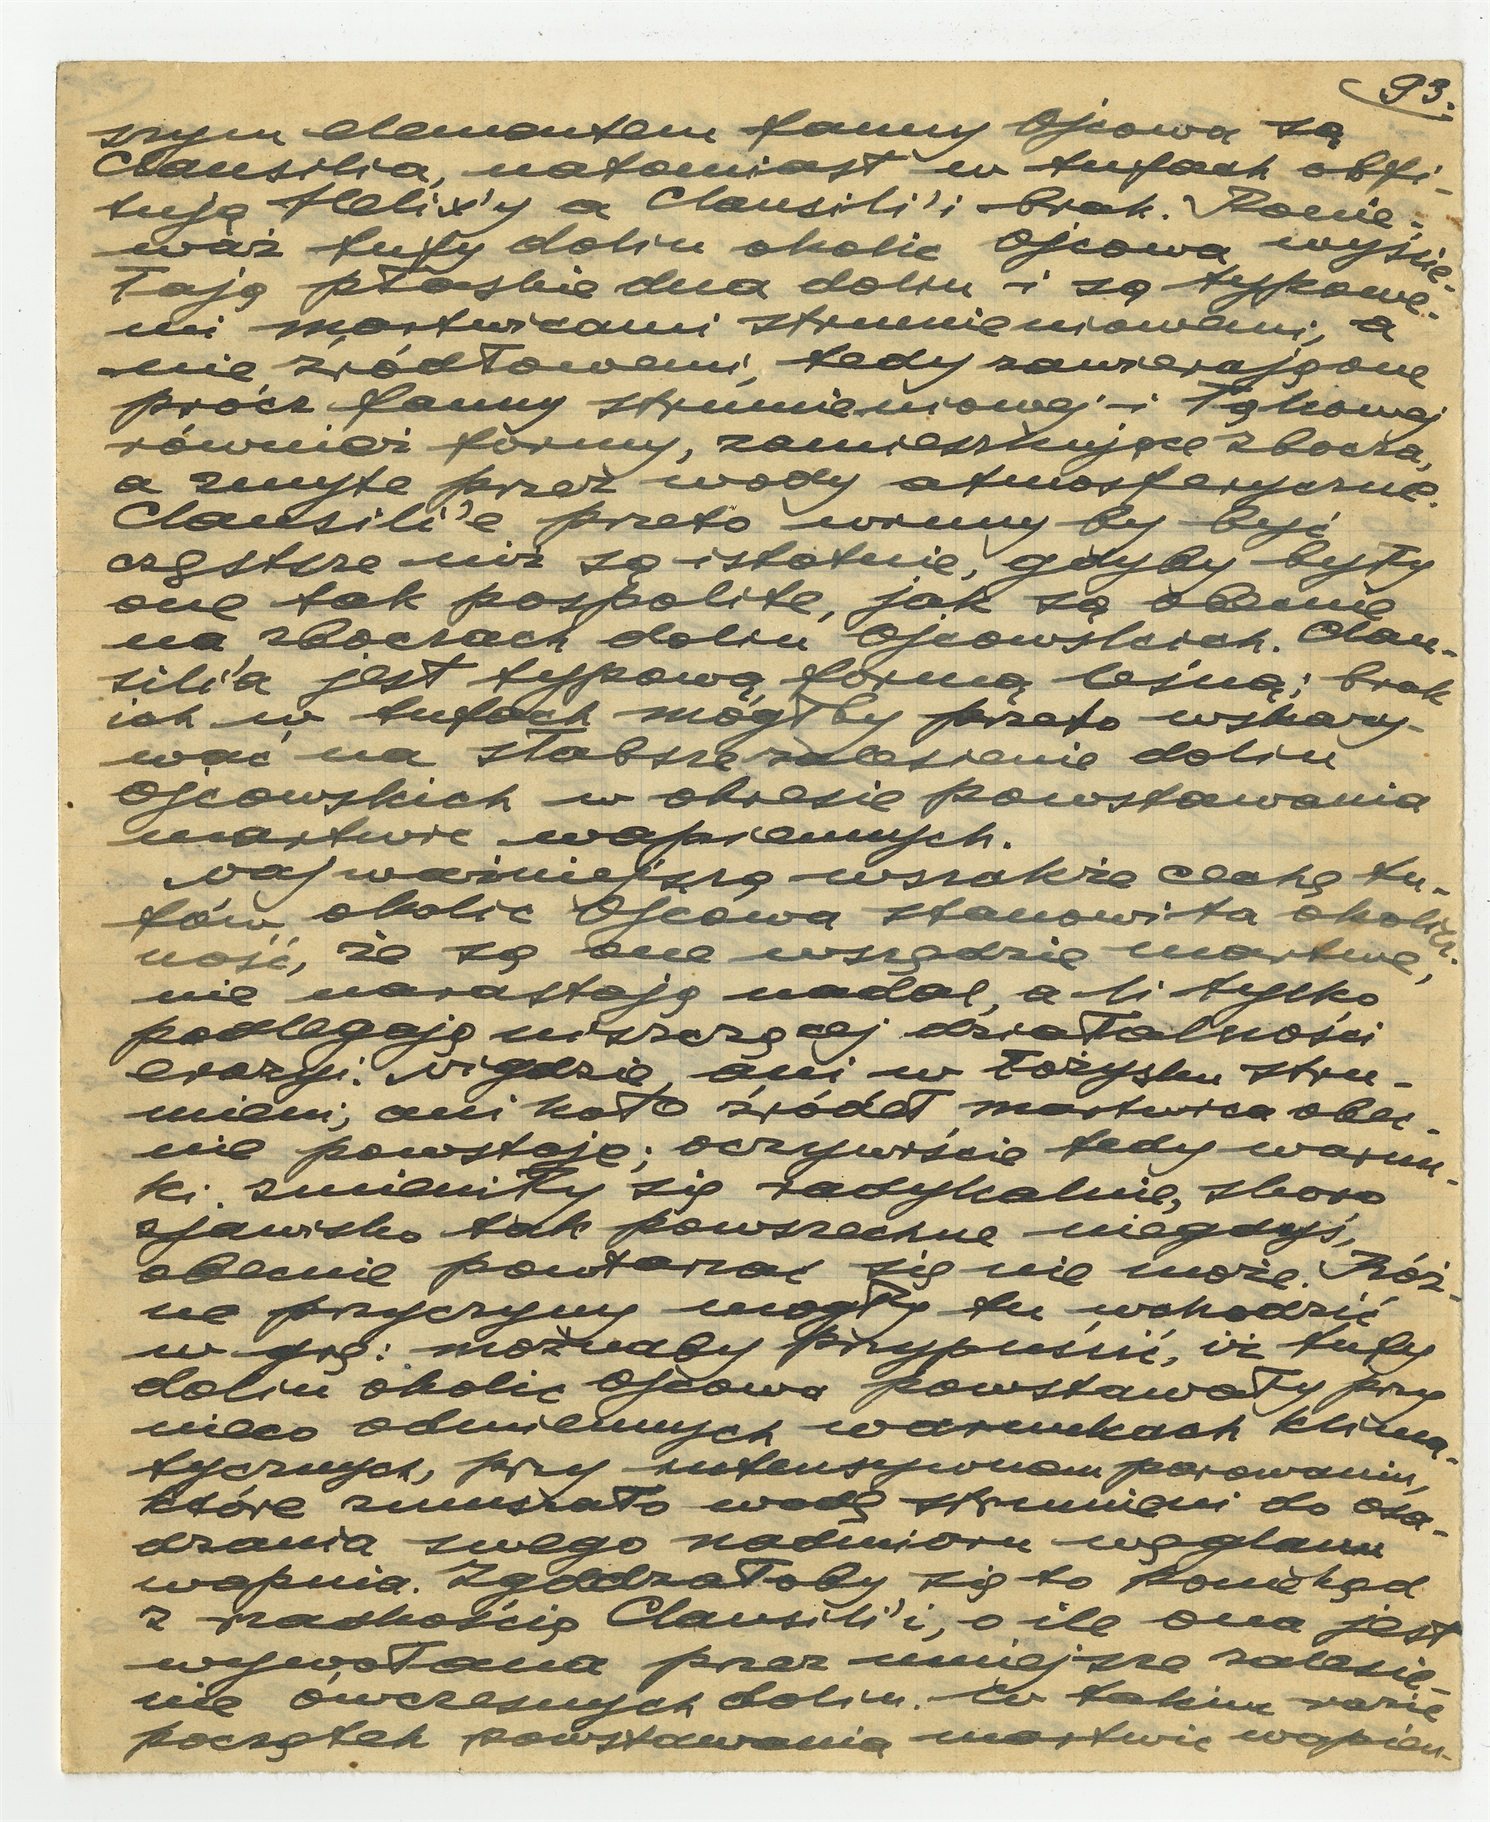 93.
szym elementem fauny Ojcowa są
Clausilia, natomiast w tufach obfi-
tują Helix'y a Clausili'i brak. Ponie-
waż tufy dolin okolic Ojcowa wyście-
łają płaskie dna dolin i są typowe-
mi martwicami strumieniowemi, a
nie źródłowemi, tedy zawierają one
prócz fauny strumieniowej i łąkowej
również formy, zamieszkujące zbocza,
a zmyte przez wody atmosferyczne.
Clausili'e przeto winny by być
częstsze niż są istotnie, gdyby były
one tak pospolite, jak są obecnie
na zboczach dolin Ojcowskich. Clau-
sili'a jest typową formą leśną; brak
ich w tufach mógłby przeto wskazy-
wać na słabsze zalesienie dolin
Ojcowskich w okresie powstawania
martwic wapiennych.
Najważniejszą wszakże cechę tu-
fów okolic Ojcowa stanowi ta okolicz-
ność, że są one wszędzie martwe,
nie narastają nadal, a li tylko
podlegają niszczącej działalności
erozyi. Nigdzie, ani w łożysku stru-
mieni, ani koło źródeł martwica obec-
nie powstaje; oczywiście tedy warun-
ki zmieniły się radykalnie, skoro
zjawisko tak powszechne niegdyś,
obecnie powtarzać się nie może. Róż-
ne przyczyny mogły tu wchodzić
w grę: możnaby przypuścić, iż tufy
dolin okolic Ojcowa powstawały przy
nieco odmiennych warunkach klima-
tycznych, przy intensywnem parowaniu,
które zmuszało wodę strumieni do osa-
dzania swego nadmioru węglanu
wapnia. Zgadzałoby się to poniekąd
z rzadkością Clausili'i, o ile ona jest
wywołana przez mniejsze zalesie-
nie ówczesnych dolin. W takim razie
początek powstawania martwic wapien-